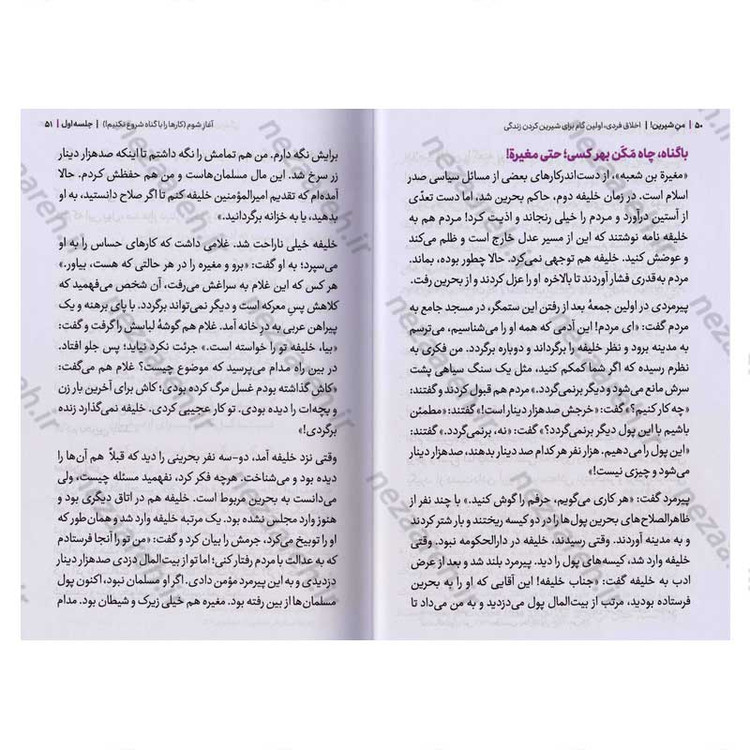 ۵۰ | من شیرین! | اخلاق فردی، اولین گام برای شیرین کردن زندگی
باگناه، چاه مَکَن بهر کسی؛ حتی مغیرة!
«مغیرة بن شعبه»، از دست‌اندرکارهای بعضی از مسائل سیاسی صدر
اسلام است. در زمان خلیفه دوم، حاکم بحرین شد، اما دست تعدّی
از آستین درآورد و مردم را خیلی رنجاند و اذیت کرد! مردم هم به
خلیفه نامه نوشتند که این از مسیر عدل خارج است و ظلم می‌کند
و عوضش کنید. خلیفه هم توجهی نمی‌کرد. حالا چطور بوده، بماند.
مردم به‌قدری فشار آوردند تا بالاخره او را عزل کردند و از بحرین رفت.
پیرمردی در اولین جمعهٔ بعد از رفتن این ستمگر، در مسجد جامع به
مردم گفت: «ای مردم! این آدمی که همه او را می‌شناسیم، می‌ترسم
به مدینه برود و نظر خلیفه را برگرداند و دوباره برگردد. من فکری به
نظرم رسیده که اگر شما کمکم کنید، مثل یک سنگ سیاهی پشت
سرش مانع می‌شود و دیگر برنمی‌گردد.» مردم هم قبول کردند و گفتند:
«چه کار کنیم؟» گفت: «خرجش صدهزار دینار است!» گفتند: «مطمئن
باشیم با این پول دیگر برنمی‌گردد؟» گفت: «نه، برنمی‌گردد.» گفتند:
«این پول را می‌دهیم. هزار نفر هر کدام صد دینار بدهند، صدهزار دینار
می‌شود و چیزی نیست!»
پیرمرد گفت: «هر کاری می‌گویم، حرفم را گوش کنید.» با چند نفر از
ظاهرالصلاح‌های بحرین پول‌ها را در دو کیسه ریختند و بار شتر کردند
و به مدینه آوردند. وقتی رسیدند، خلیفه در دارالحکومه نبود. وقتی
خلیفه وارد شد، کیسه‌های پول را دید. پیرمرد بلند شد و بعد از عرض
ادب به خلیفه گفت: «جناب خلیفه! این آقایی که او را به بحرین
فرستاده بودید، مرتب از بیت‌المال پول می‌دزدید و به من می‌داد تا
آغاز شوم (کارها را با گناه شروع نکنیم!) | جلسه اول | ۵۱
برایش نگه دارم. من هم تمامش را نگه داشتم تا اینکه صدهزار دینار
زر سرخ شد. این مال مسلمان‌هاست و من هم حفظش کردم. حالا
آمده‌ام که تقدیم امیرالمؤمنین خلیفه کنم تا اگر صلاح دانستید، به او
بدهید، یا به خزانه برگردانید.»
خلیفه خیلی ناراحت شد. غلامی داشت که کارهای حساس را به او
می‌سپرد؛ به او گفت: «برو و مغیره را در هر حالتی که هست، بیاور.»
هر کس که این غلام به سراغش می‌رفت، آن شخص می‌فهمید که
کلاهش پسِ معرکه است و دیگر نمی‌تواند برگردد. با پای برهنه و یک
پیراهن عربی به درِ خانه آمد. غلام هم گوشهٔ لباسش را گرفت و گفت:
«بیا، خلیفه تو را خواسته است.» جرئت نکرد نیاید؛ پس جلو افتاد.
در بین راه مدام می‌پرسید که موضوع چیست؟ غلام هم می‌گفت:
«کاش گذاشته بودم غسل مرگ کرده بودی؛ کاش برای آخرین بار زن
و بچه‌ات را دیده بودی. تو کار عجیبی کردی. خلیفه نمی‌گذارد زنده
برگردی!»
وقتی نزد خلیفه آمد، دو-سه نفر بحرینی را دید که قبلاً هم آن‌ها را
دیده بود و می‌شناخت. هرچه فکر کرد، نفهمید مسئله چیست، ولی
می‌دانست به بحرین مربوط است. خلیفه هم در اتاق دیگری بود و
هنوز وارد مجلس نشده بود. یک مرتبه خلیفه وارد شد و همان‌طور که
او را توبیخ می‌کرد، جرمش را بیان کرد و گفت: «من تو را آنجا فرستادم
که به عدالت با مردم رفتار کنی؛ اما تو از بیت‌المال دزدی صدهزار دینار
دزدیدی و به این پیرمرد مؤمن دادی. اگر او مسلمان نبود، اکنون پول
مسلمان‌ها از بین رفته بود. مغیره هم خیلی زیرک و شیطان بود. مدام
nezaareh.ir